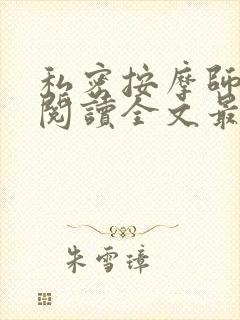 私密按摩師
閱讀全文最
朱雪璋